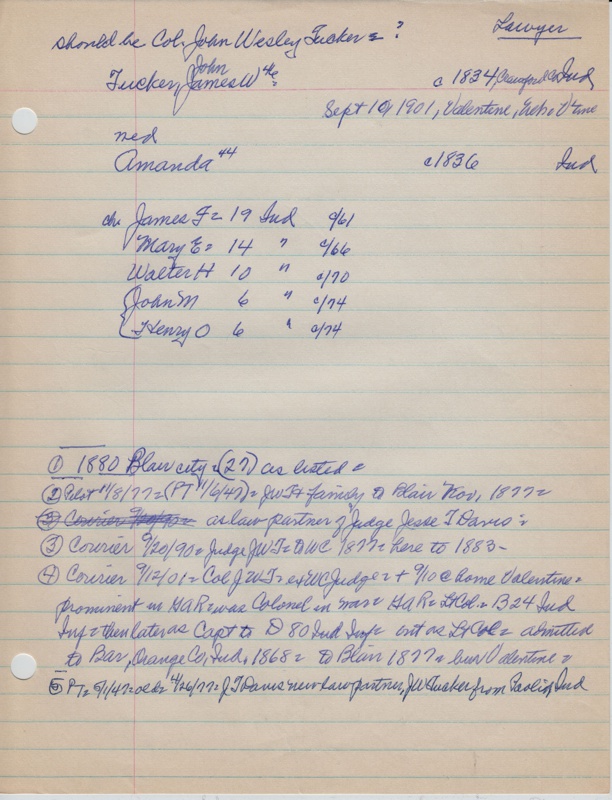 Lawyer
should be Col. John Wesley Tucker = ?
John
Tucker, James W 46= c 1834, Crawford Co, Ind
Sept 10 1901, Valentine, Nebr
med
Amanda 44 c 1836 Ind
ch. James F = 19 Ind c/61
Mary E = 14 " c/66
Walter H 10 " c/70
John M 6 " c/74
Henry O 6 " c/74
① 1880 Blair city = (27) as listed =
② Pilot 11/8/77 = (PT 11/6/47) = JWT + family to Blair Nov, 1877 =
as law partner of Judge Jesse T Davis =
③ Courier 9/20/90 = Judge JWT = DWC 1877 = here to 1883 -
④ Courier 9/12/01 = Col JWT = ex WC Judge = + 9/10 @ home Valentine =
prominent in GAR = was Colonel in war = GAR = Lt Col. = B 24 Ind
Inf = then later as Capt to D 80 Ind Inf = out as Lt Col = admitted
to Bar, Orange Co, Ind, 1868 = to Blair 1877 = bur Valentine =
⑤ PT = 5/1/47 = old = 4/26/77 = J T Davis' new law partner, JW Tucker from Paoli, Ind